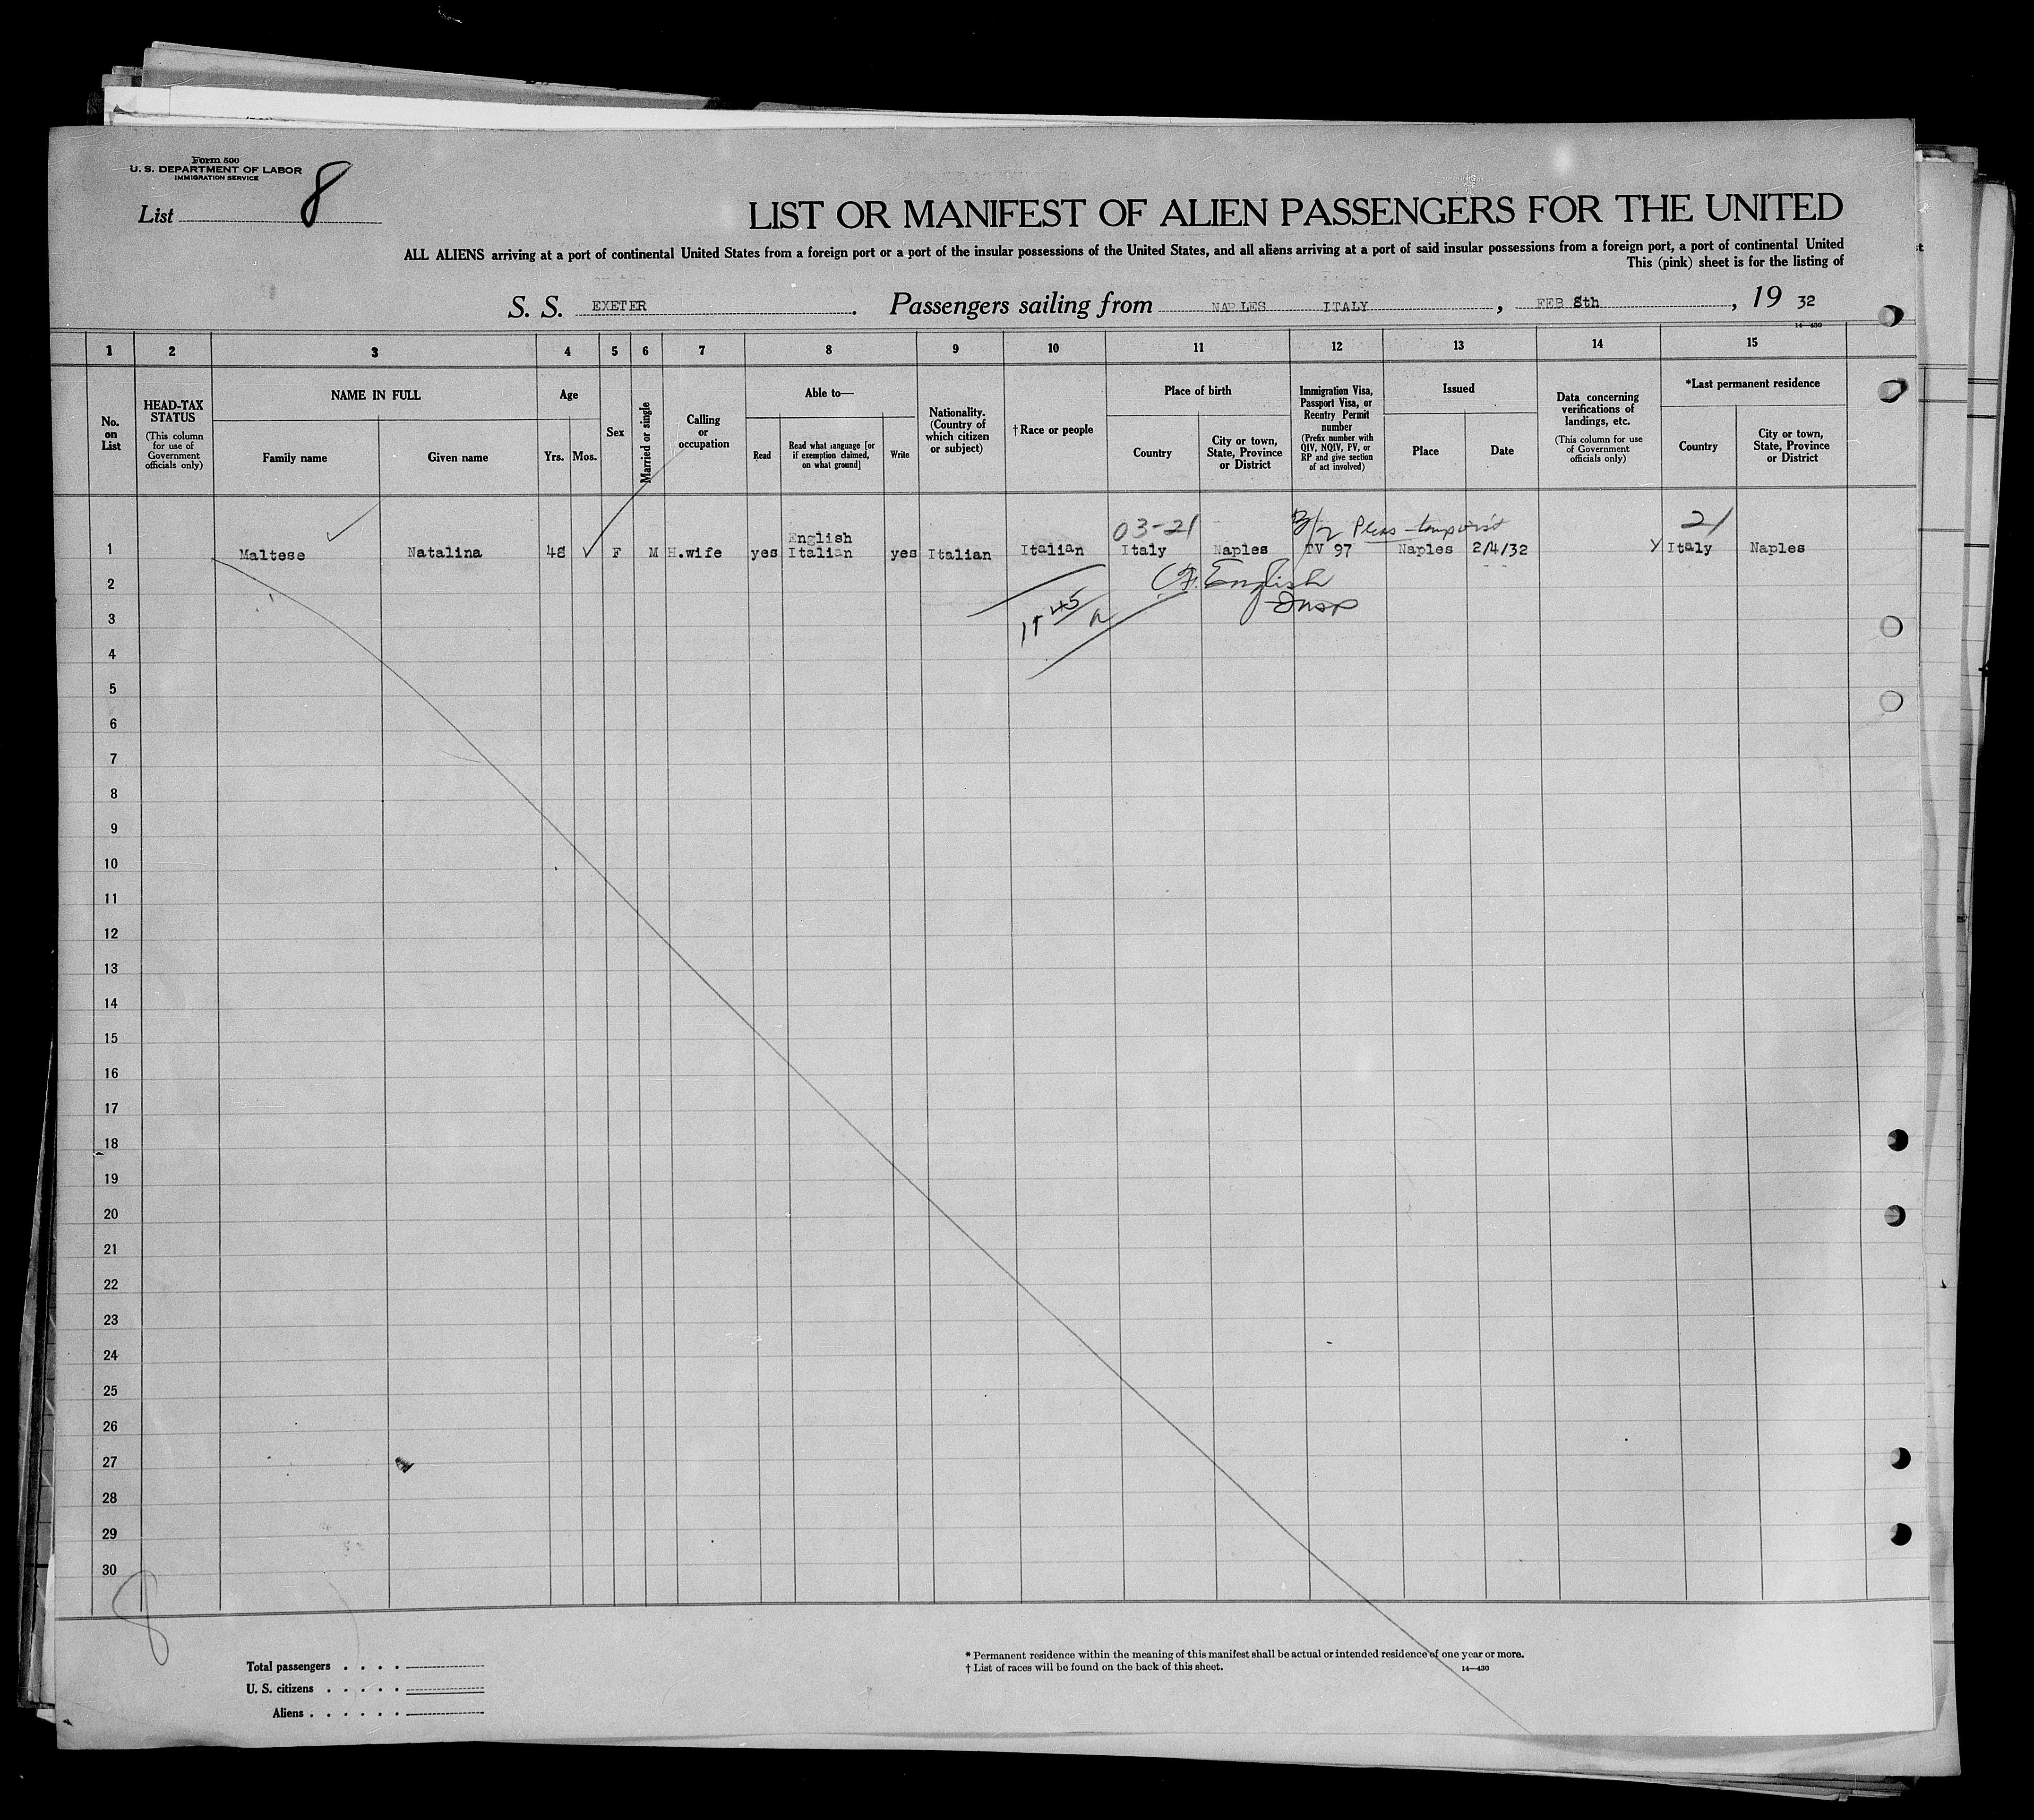 Form 500
U. S. DEPARTMENT OF LABOR
IMMIGRATION SERVICE
List 8
LIST OR MANIFEST OF ALIEN PASSENGERS FOR THE UNITED
ALL ALIENS arriving at a port of continental United States from a foreign port or a port of the insular possessions of the United States, and all aliens arriving at a port of said insular possessions from a foreign port, a port of continental United
This (pink) sheet is for the listing of
S. S. EXETER. Passengers sailing from NAPLES ITALY, FEB 8th, 19 32
14—430
1 2 3 4 5 6 7 8 9 10 11 12 13 14 15
No. on List
HEAD-TAX STATUS
(This column for use of Government officials only)
NAME IN FULL
Family name
Given name
Age
Yrs.
Mos.
Sex
Married or single
Calling or occupation
Able to—
Read
Read what language [or if exemption claimed, on what ground]
Write
Nationality. (Country of which citizen or subject)
†Race or people
Place of birth
Country
City or town, State, Province or District
Immigration Visa, Passport Visa, or Reentry Permit number
(Prefix number with QIV, NQIV, PV, or RP and give section of act involved)
Issued
Place
Date
Data concerning verifications of landings, etc.
(This column for use of Government officials only)
*Last permanent residence
Country
City or town, State, Province or District
03-21 3/2 Pleas 21
English
1 Maltese Natalina 48 F M H.wife yes Italian yes Italian Italian Italy Naples TV 97 Naples 2/4/32 Italy Naples
English
Insp
2
3
4
5
6
7
8
9
10
11
12
13
14
15
16
17
18
19
20
21
22
23
24
25
26
27
28
29
30
8
Total passengers . . . .
U. S. citizens . . . . .
Aliens . . . . . .
* Permanent residence within the meaning of this manifest shall be actual or intended residence of one year or more.
† List of races will be found on the back of this sheet.
14—430